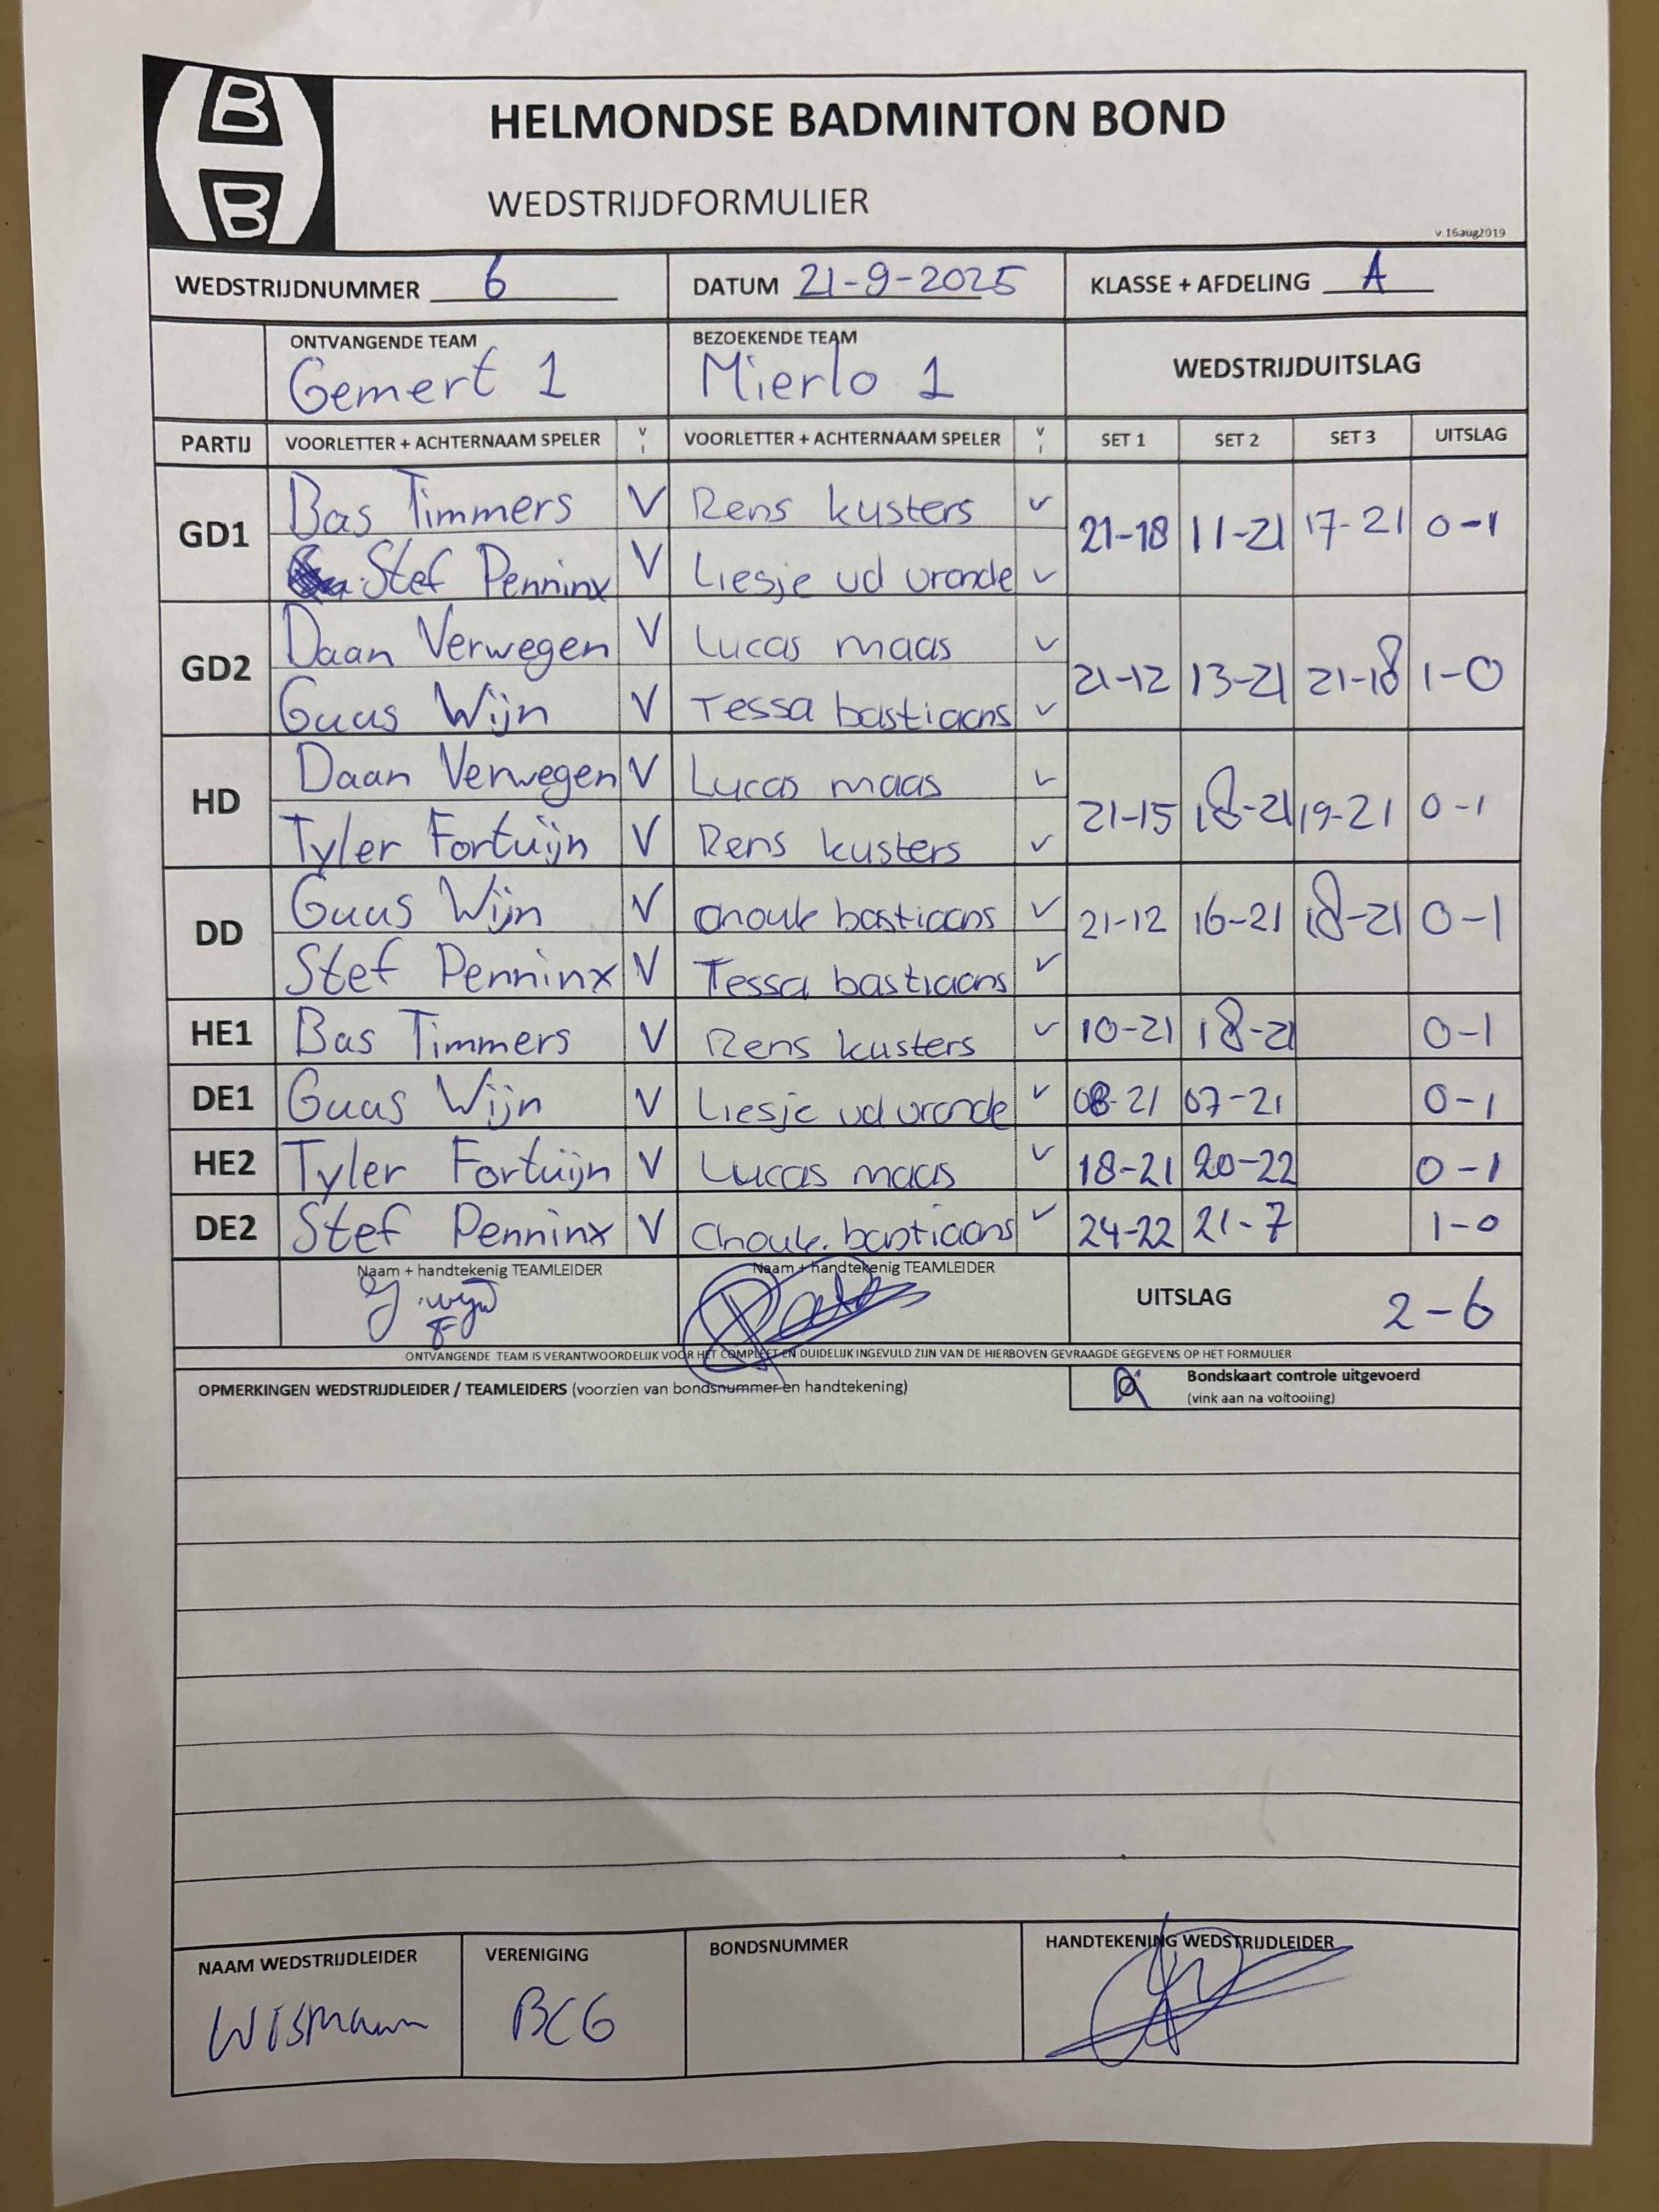 B
B
HELMONDSE BADMINTON BOND
WEDSTRIJDFORMULIER
v.16aug2019
WEDSTRIJDNUMMER 6 DATUM 21-9-2025 KLASSE + AFDELING A
ONTVANGENDE TEAM BEZOEKENDE TEAM WEDSTRIJDUITSLAG
Gemert 1 Mierlo 1
PARTIJ VOORLETTER + ACHTERNAAM SPELER V I VOORLETTER + ACHTERNAAM SPELER V I SET 1 SET 2 SET 3 UITSLAG
GD1 Bas Timmers V Rens kusters ✓ 21-18 11-21 17-21 0-1
Stef Penninx V Liesje vd vrande ✓
GD2 Daan Verwegen V Lucas maas ✓ 21-12 13-21 21-18 1-0
Guus Wijn V Tessa bastiaans ✓
HD Daan Verwegen V Lucas maas ✓ 21-15 18-21 19-21 0-1
Tyler Fortuijn V Rens kusters ✓
DD Guus Wijn V Anouk bastiaans ✓ 21-12 16-21 18-21 0-1
Stef Penninx V Tessa bastiaans ✓
HE1 Bas Timmers V Rens kusters ✓ 10-21 18-21 0-1
DE1 Guus Wijn V Liesje vd vrande ✓ 08-21 07-21 0-1
HE2 Tyler Fortuijn V Lucas maas ✓ 18-21 20-22 0-1
DE2 Stef Penninx V Anouk bastiaans ✓ 24-22 21-7 1-0
Naam + handtekenig TEAMLEIDER Naam + handtekenig TEAMLEIDER UITSLAG 2-6
ONTVANGENDE TEAM IS VERANTWOORDELIJK VOOR HET COMPLEET EN DUIDELIJK INGEVULD ZIJN VAN DE HIERBOVEN GEVRAAGDE GEGEVENS OP HET FORMULIER
OPMERKINGEN WEDSTRIJDLEIDER / TEAMLEIDERS (voorzien van bondsnummer en handtekening)
Bondskaart controle uitgevoerd
(vink aan na voltooiing)
NAAM WEDSTRIJDLEIDER VERENIGING BONDSNUMMER HANDTEKENING WEDSTRIJDLEIDER
Wismann BCG